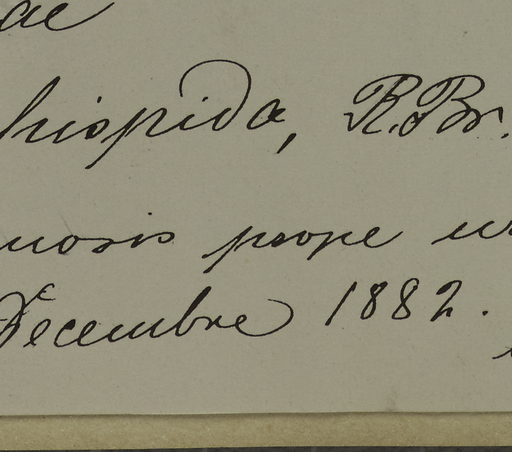 ae
hispida, R. Br.
nosis prope ur
Decembre 1882.